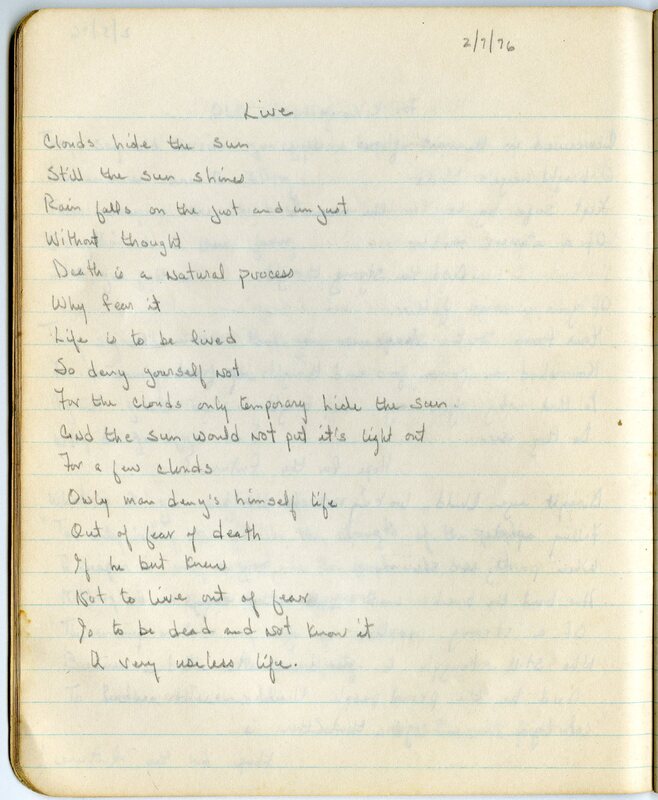 2/7/76
Live
Clouds hide the sun
Still the sun shines
Rain falls on the just and unjust
Without thought
Death is a natural process
Why fear it
Life is to be lived
So deny yourself not
For the clouds only temporary hide the sun
And the sun would not put it's light out
For a few clouds
Only man deny's himself life
Out of fear of death
If he but knew
Not to live out of fear
Is to be dead and not know it
A very useless life.